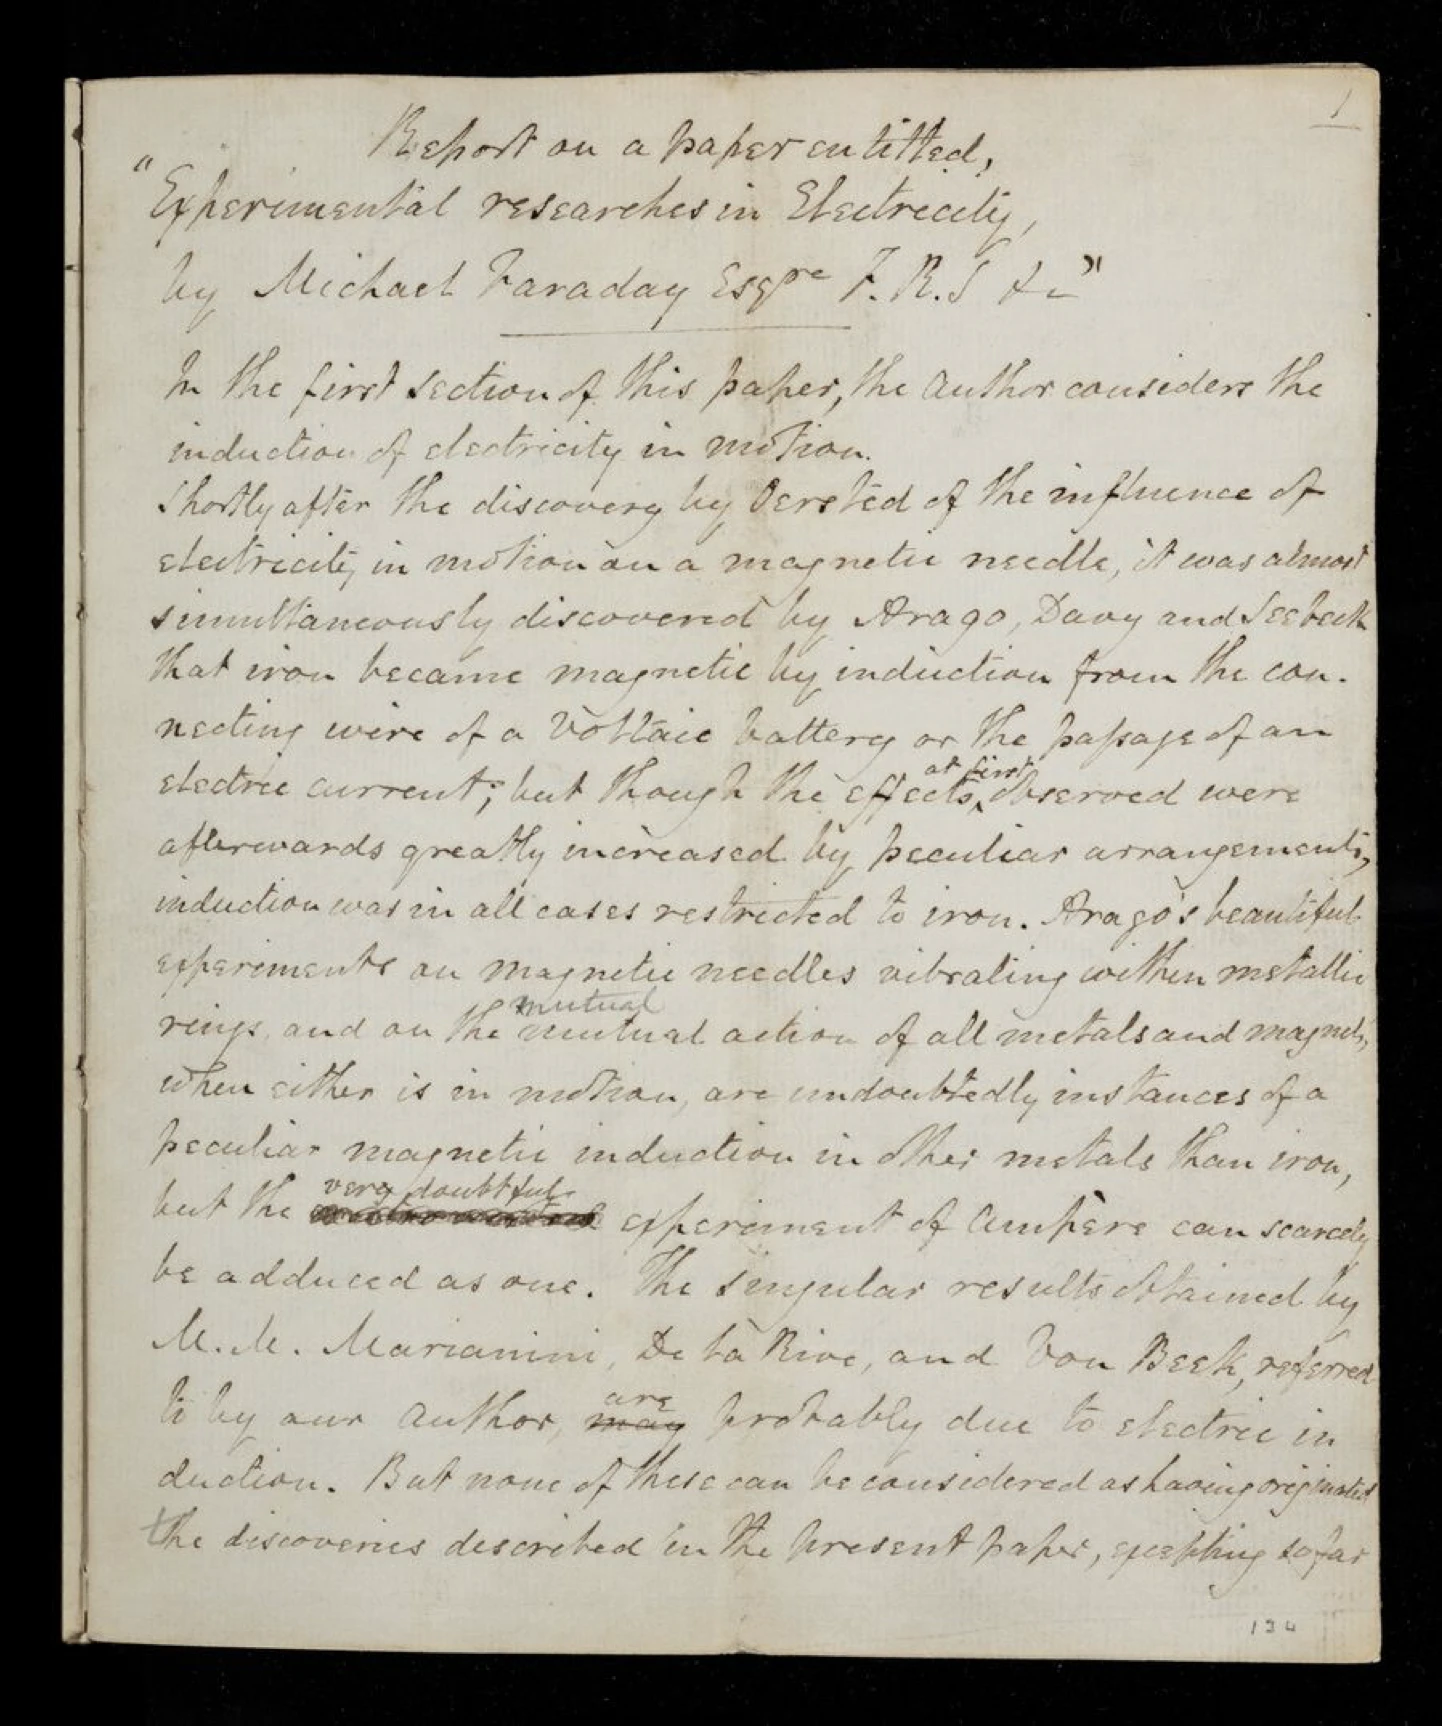 1
Report on a paper entitled,
"Experimental researches in Electricity,
by Michael Faraday Esqre F.R.S &c"
In the first Section of this paper, the Author considers the
induction of electricity in motion.
Shortly after the discovery by Oersted of the influence of
electricity in motion on a magnetic needle, it was almost
simultaneously discovered by Arago, Davy and Seebeck
that iron became magnetic by induction from the con-
necting wire of a Voltaic battery or the passage of an
at first
electric current; but though the effects observed were
afterwards greatly increased by peculiar arrangements,
induction was in all cases restricted to iron. Arago's beautiful
experiments on magnetic needles vibrating within metallic
mutual
rings, and on the mutual action of all metals and magnets,
when either is in motion, are undoubtedly instances of a
peculiar magnetic induction in other metals than iron,
very doubtful
but the experiment of Ampère can scarcely
be adduced as one. The singular results obtained by
M.M. Marianini, De la Rive, and Von Beek, referred
are
to by our Author, may probably due to electric in
duction. But none of these can be considered as having originated
the discoveries described in the present paper, excepting so far
134